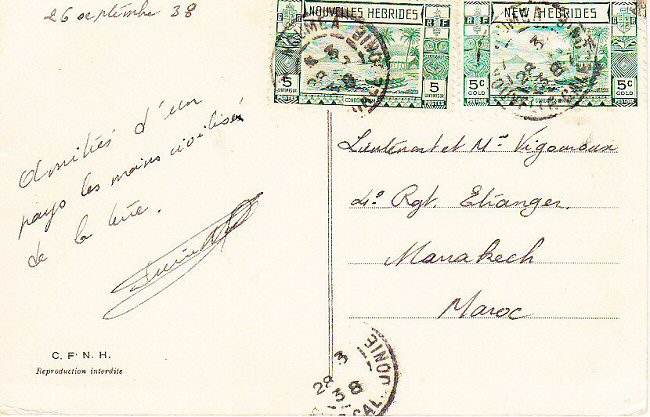 26 septembre 38
NOUVELLES HEBRIDES
RF
5
CENTIMES OR
CONDOMINIUM
5
NEW HEBRIDES
RF
5c
GOLD
5c
GOLD
NOUMEA
NOUMEA
Amitiés d'un
pays les moins civilisés
de la terre.
Lieutenant et Me Vigouroux
4e Rgt. Etranger.
Marrakech
Maroc
C. F. N. H.
Reproduction interdite
3
28
38
CAL DONIE